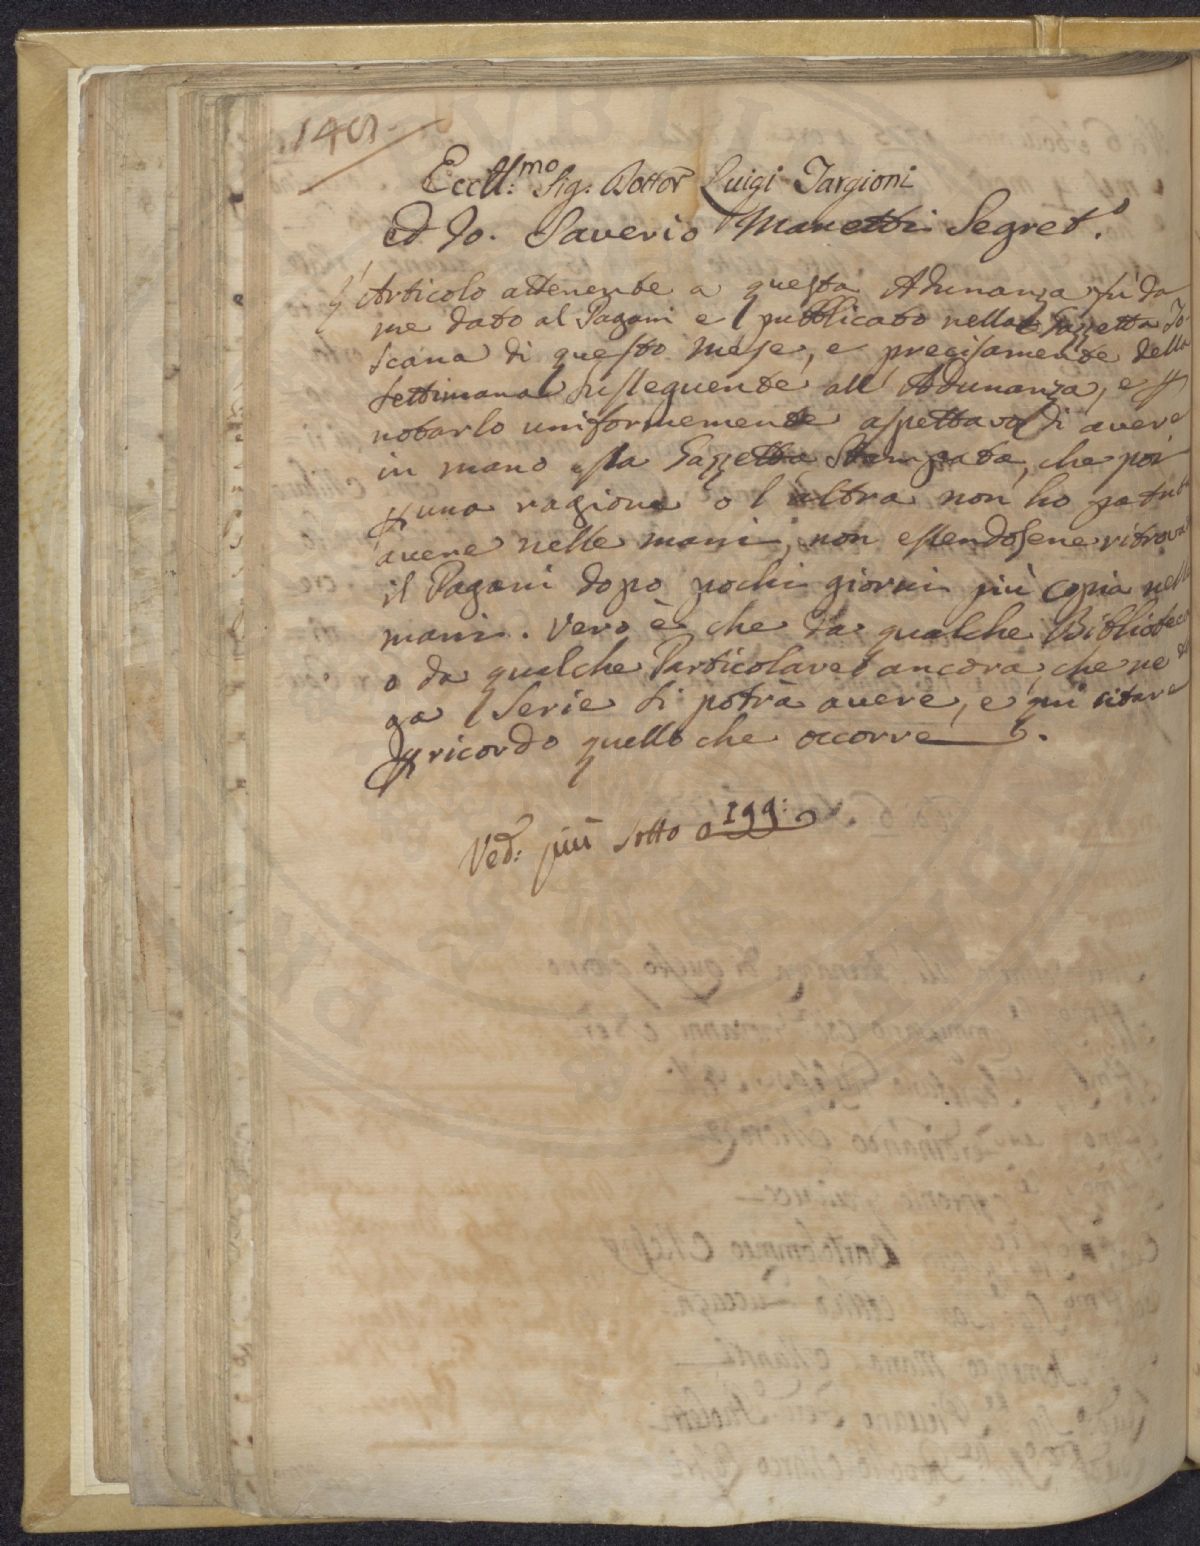 140
Eccll:mo Sig: Dottor Luigi Targioni
Ed Io. Saverio Manetti Segret.o
L'Articolo attenente a questa Adunanza fù da
me dato al Pagani e pubblicato nella Gazzetta To
scana di questo mese, e precisamente della
settimana susseguente all' Adunanza, e p
notarlo uniformemente aspettavo di avere
in mano essa Gazzetta Stampata, che poi
p una ragione o l'altra non ho potuto
avere nelle mani, non essendosene ritrova
il Pagani dopo pochi giorni più copia nelle
mani. Vero è che da qualche Bibliotec
o da qualche Particolare ancora, che ne
ga Serie si potrà avere, e qui citare
p ricordo quello che occorre.
Ved: più sotto a 199: